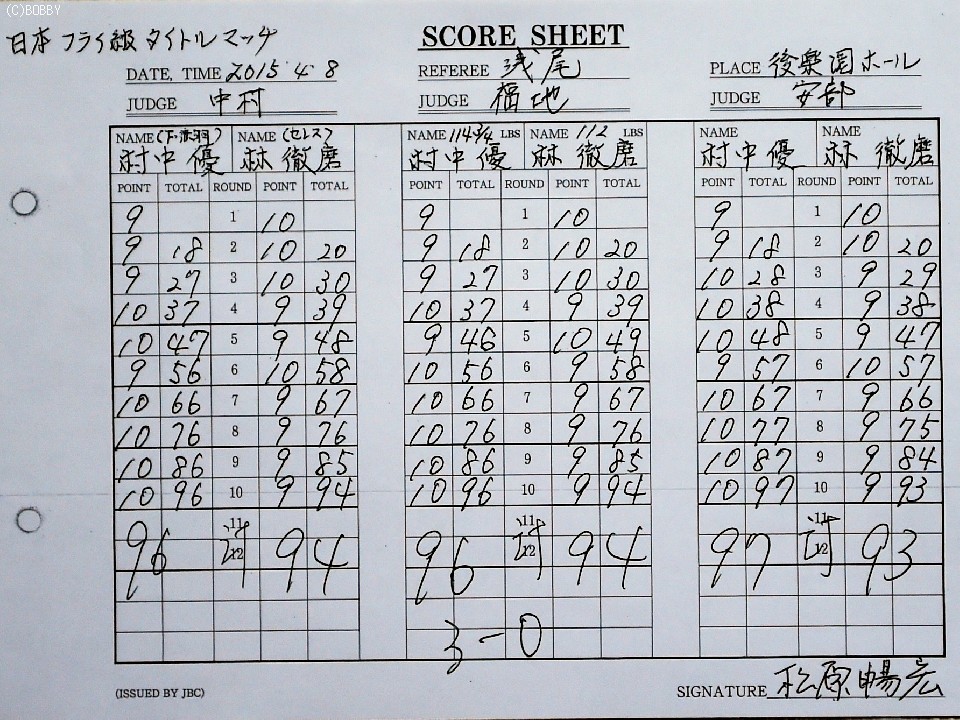 (C)BOBBY
日本フライ級タイトルマッチ
SCORE SHEET
DATE, TIME 2015 4 8 REFEREE 浅尾 PLACE 後楽園ホール
JUDGE 中村 JUDGE 福地 JUDGE 安部
NAME (下・赤羽) NAME (セレス) NAME 114 3/4 LBS NAME 112 LBS NAME NAME
村中優 林徹磨 村中優 林徹磨 村中優 林徹磨
POINT TOTAL ROUND POINT TOTAL POINT TOTAL ROUND POINT TOTAL POINT TOTAL ROUND POINT TOTAL
9 1 10 9 1 10 9 1 10
9 18 2 10 20 9 18 2 10 20 9 18 2 10 20
9 27 3 10 30 9 27 3 10 30 10 28 3 9 29
10 37 4 9 39 10 37 4 9 39 10 38 4 9 38
10 47 5 9 48 9 46 5 10 49 10 48 5 9 47
9 56 6 10 58 10 56 6 9 58 9 57 6 10 57
10 66 7 9 67 10 66 7 9 67 10 67 7 9 66
10 76 8 9 76 10 76 8 9 76 10 77 8 9 75
10 86 9 9 85 10 86 9 9 85 10 87 9 9 84
10 96 10 9 94 10 96 10 9 94 10 97 10 9 93
11 11 11
96 討 94 96 討 94 97 討 93
12 12 12
3-0
(ISSUED BY JBC) SIGNATURE 松原暢宏